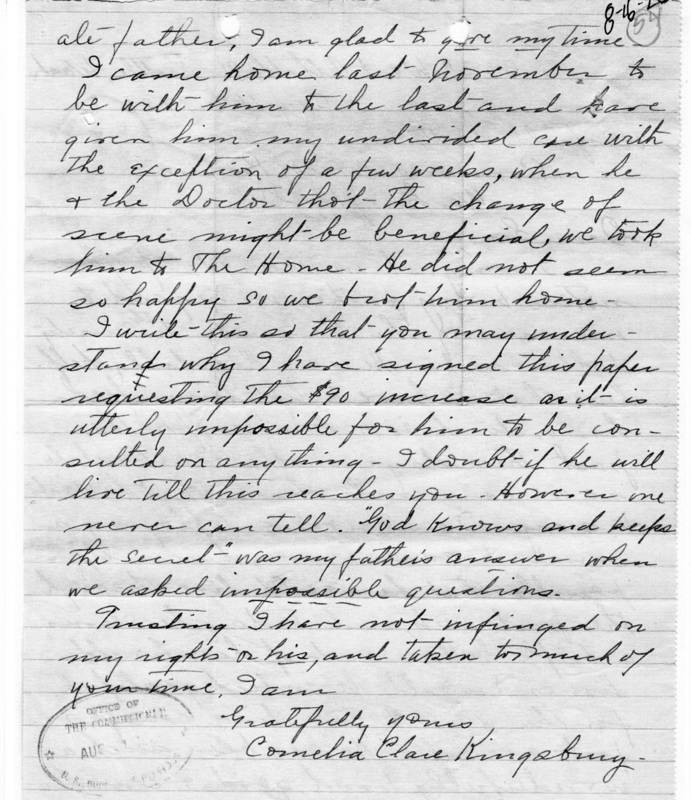 8-16-2
54
ate father, I am glad to give my time
I came home last November to
be with him to the last and have
given him my undivided care with
the exception of a few weeks, when he
& the Doctor thot the change of
scene might be beneficial, we took
him to The Home - He did not seem
so happy so we brot him home -
I write this so that you may under-
stand why I have signed this paper
requesting the $90 increase as it is
utterly impossible for him to be con-
sulted on any thing - I doubt if he will
live till this reaches you. However one
never can tell. "God knows and keeps
the secret" was my father's answer when
we asked impossible questions.
Trusting I have not infringed on
my rights or his, and taken too much of
your time, I am
Gratefully yours
Cornelia Clare Kingsbury.
OFFICE OF
THE COMMISSIONER
AUG